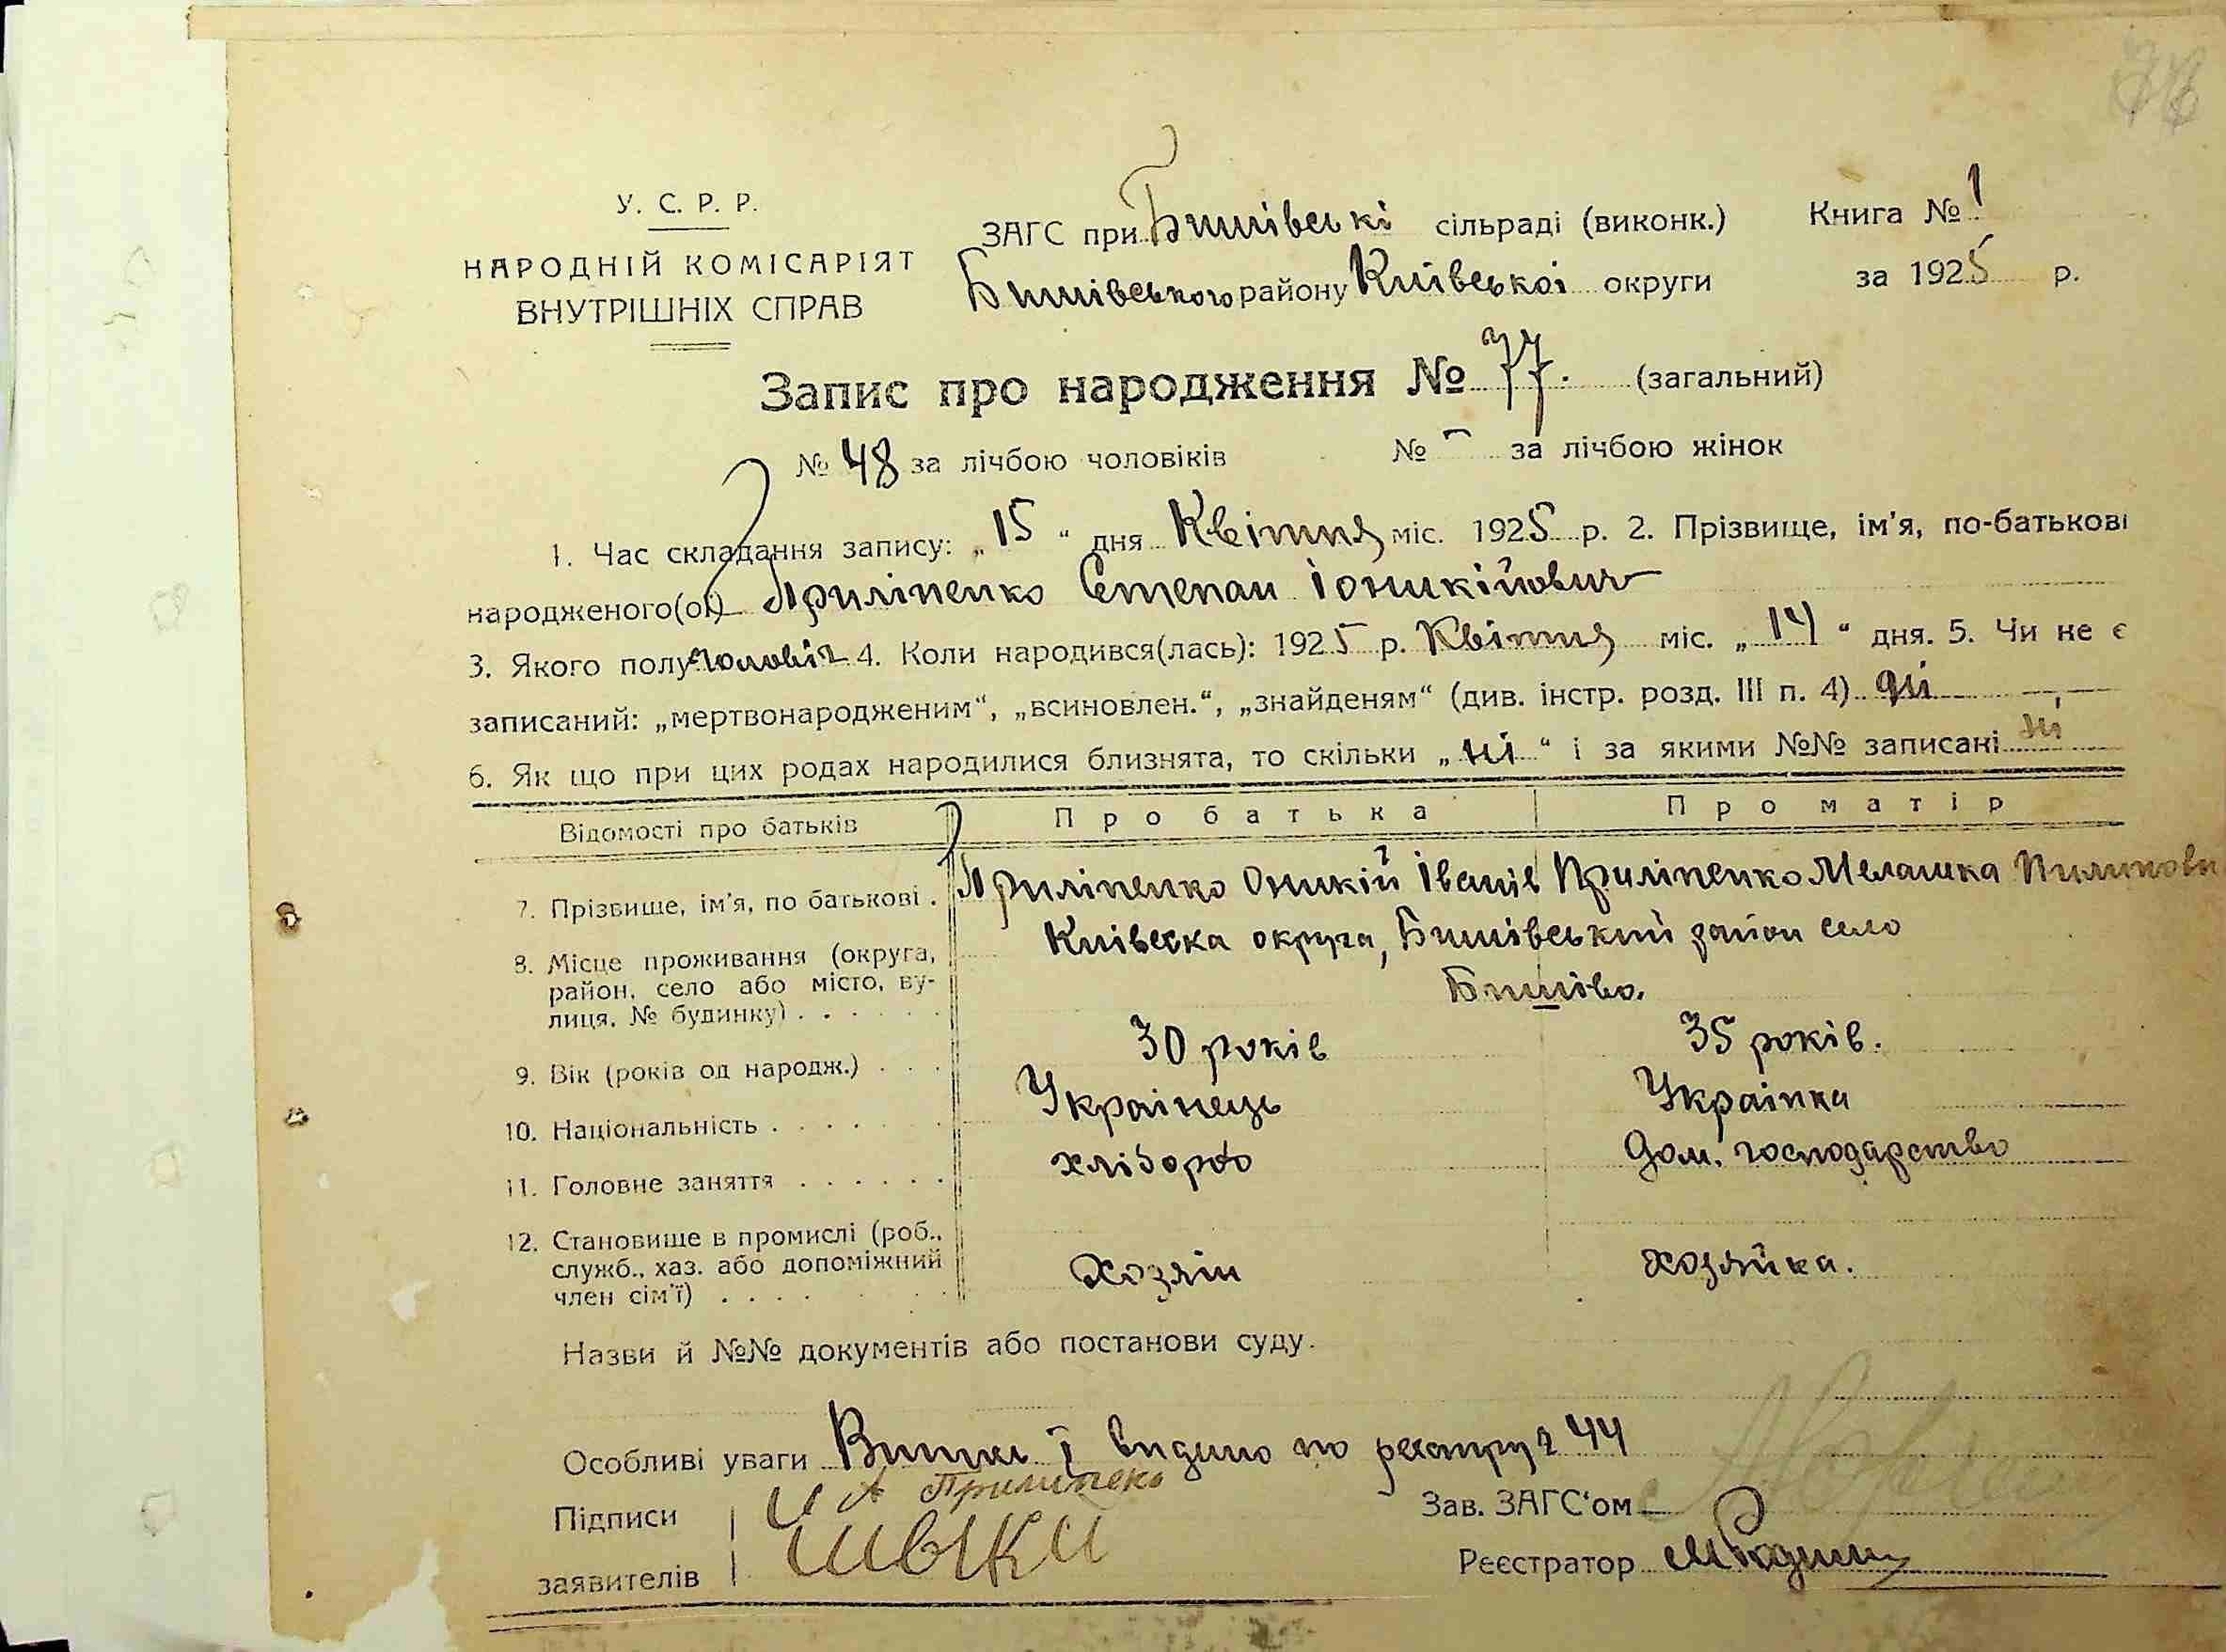 У. С. Р. Р.
НАРОДНІЙ КОМІСАРІЯТ
ВНУТРІШНІХ СПРАВ
ЗАГС при Бишівські сільраді (виконк.) Книга № 1
Бишівського району Київської округи за 1925 р.
Запис про народження № 77. (загальний)
№ 48 за лічбою чоловіків № – за лічбою жінок
1. Час складання запису: „15“ дня Квітня міс. 1925 р. 2. Прізвище, ім'я, по-батькові
народженого(ої) Приліпенко Степан Іоникійович
3. Якого полу чоловіч 4. Коли народився(лась): 1925 р. Квітня міс. „14“ дня. 5. Чи не є
записаний: „мертвонародженим“, „всиновлен.“, „знайденям“ (див. інстр. розд. III п. 4) ні
6. Як що при цих родах народилися близнята, то скільки „ні“ і за якими №№ записані ні
Відомості про батьків Про батька Про матір
7. Прізвище, ім'я, по батькові . Приліпенко Оникій Іванів Приліпенко Мелашка
8. Місце проживання (округа, район, село або місто, вулиця, № будинку) . . . . . . Київська округа, Бишівський район село
Бишів.
9. Вік (років од народж.) . . . 30 років 35 років.
10. Національність . . . . . . Українець Українка
11. Головне заняття . . . . . . хлібороб Дом. господарство
12. Становище в промислі (роб., служб., хаз. або допоміжний член сім'ї) . . . . Хозяїн хозяйка.
Назви й №№ документів або постанови суду.
Особливі уваги видано по реєстру 44
Підписи Приліпеко
заявителів
Зав. ЗАГС'ом
Реєстратор